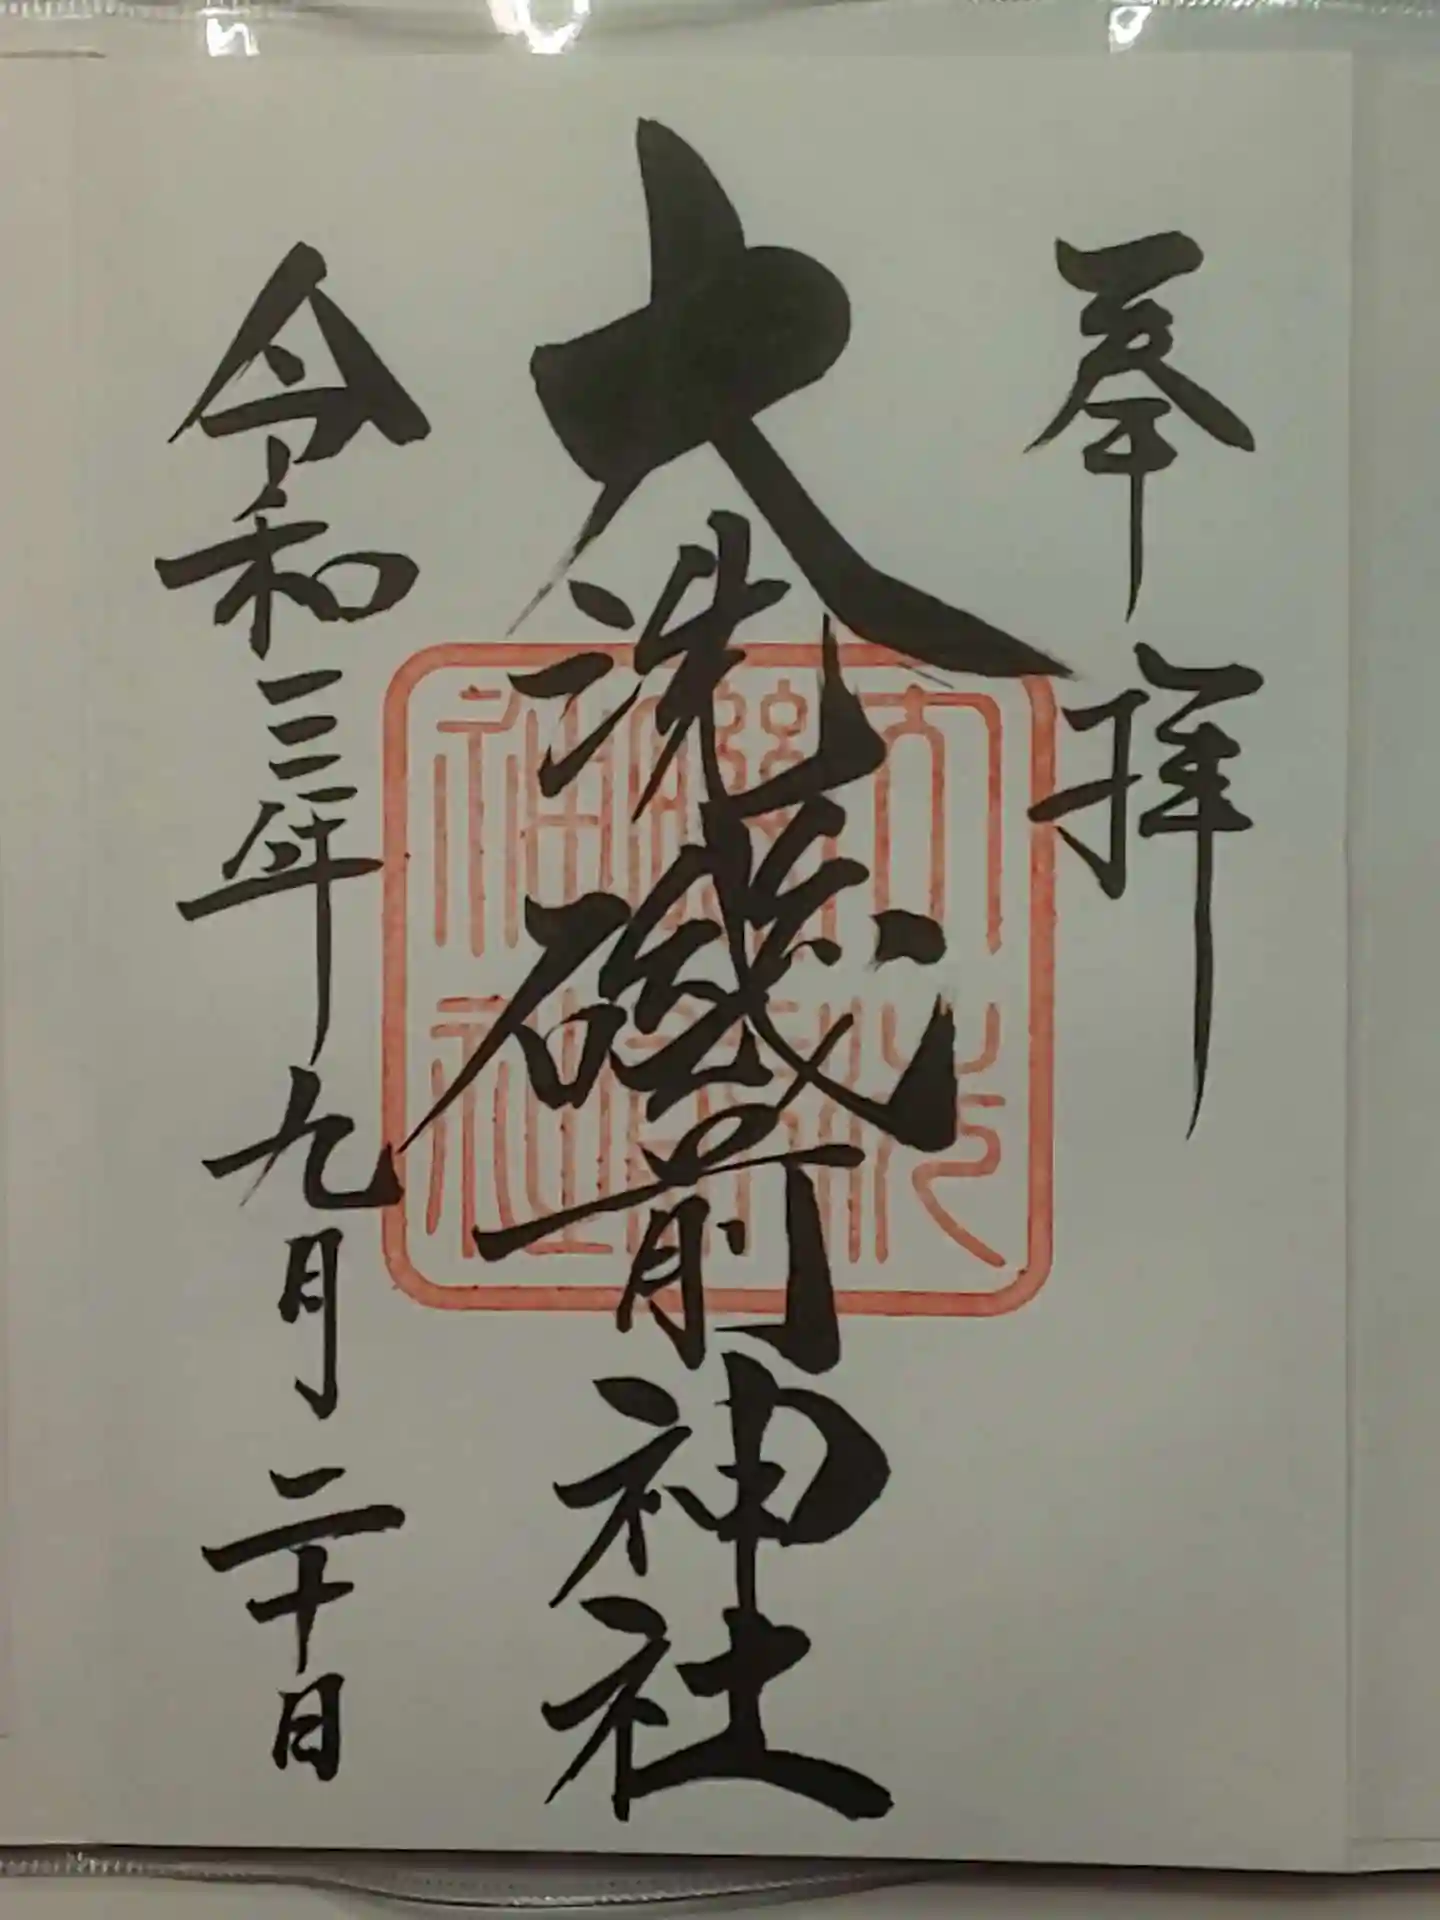 奉拝
大洗磯前神社
大洗磯前神社
令和三年九月二十日